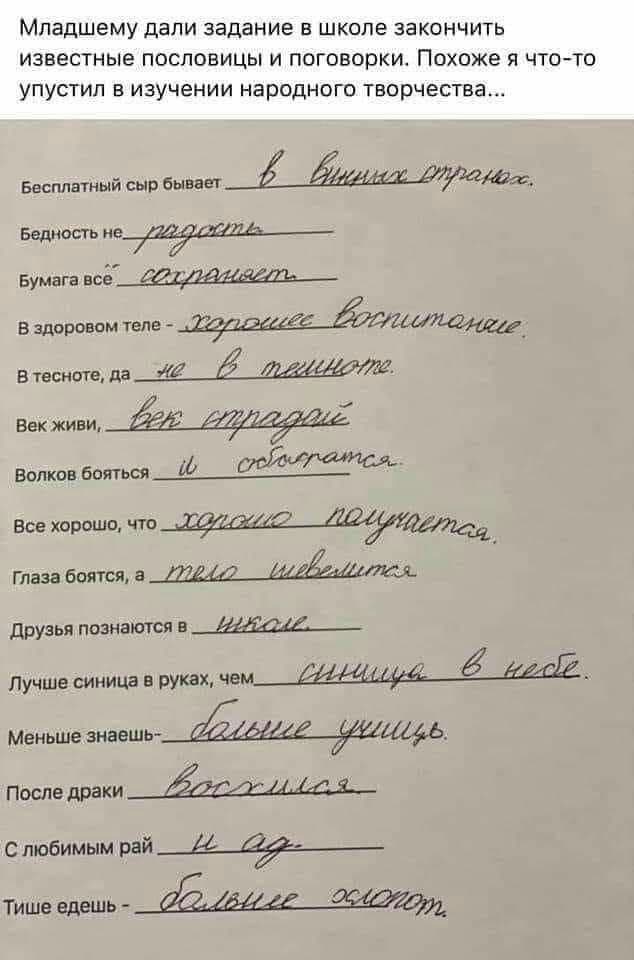 Младшему дали задание в школе закончить
известные пословицы и поговорки. Похоже я что-то
упустил в изучении народного творчества...
Бесплатный сыр бывает в винных странах.
Бедность не радость
Бумага всё сохраняет.
В здоровом теле - хорошее воспитание.
В тесноте, да не в темноте.
Век живи, век страдай
Волков бояться и
Все хорошо, что хорошо получается.
Глаза боятся, а тело шевелится
Друзья познаются в школе.
Лучше синица в руках, чем синица в небе.
Меньше знаешь- больше учишь.
После драки восхилися
С любимым рай и ад.
Тише едешь - больше хлопот.